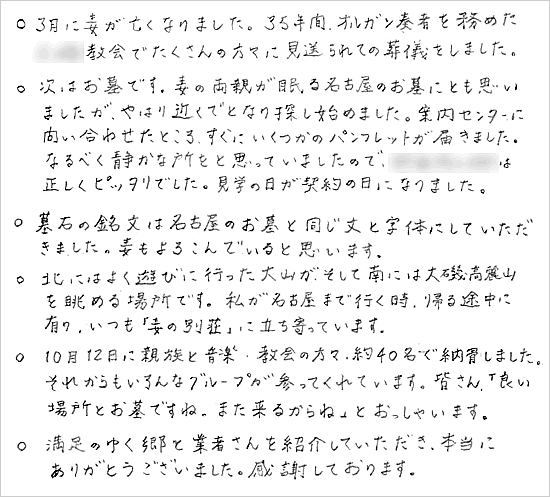 ○ 3月に妻が亡くなりました。35年間、オルガン奏者を務めた
教会でたくさんの方々に見送られての葬儀をしました。
○ 次はお墓です。妻の両親が眠る名古屋のお墓にとも思い
ましたが、やはり近くでとなり探し始めました。案内センターに
問い合わせたところ、すぐにいくつかのパンフレットが届きました。
なるべく静かな所をと思っていましたので、は
正しくピッタリでした。見学の日が契約の日になりました。
○ 墓石の銘文は名古屋のお墓と同じ文と字体にしていただ
きました。妻もよろこんでいると思います。
○ 北にはよく遊びに行った大山がそして南には大磯高麗山
を眺める場所です。私が名古屋まで行く時、帰る途中に
有り、いつも「妻の別荘」に立ち寄っています。
○ 10月12日に親族と音楽・教会の方々、約40名で納骨しました。
それからもいろんなグループが参ってくれています。皆さん、「良い
場所とお墓ですね。また来るからね」とおっしゃいます。
○ 満足のゆく郷と業者さんを紹介していただき、本当に
ありがとうございました。感謝しております。